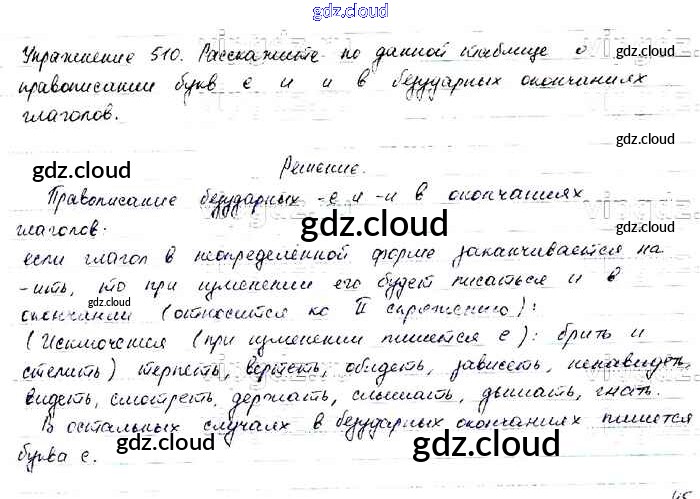 gdz.cloud
Упражнение 510. Расскажите по данной таблице о gdz.cloud
правописании букв е и и в безударных окончаниях
глаголов.
gdz.cloud
Решение.
gdz.cloud gdz.cloud
Правописание безударных -е и -и в окончаниях
глаголов. gdz.cloud
если глагол в неопределённой форме заканчивается на
gdz.cloud gdz.cloud
-ить, то при изменении его будет писаться и в
gdz.cloud
окончании (относится ко II спряжению):
(Исключения (при изменении пишется е): брить и
стелить) терпеть, вертеть, обидеть, зависеть, ненавидеть,
видеть, смотреть, держать, слышать, дышать, гнать.
В остальных случаях в безударных окончаниях пишется
gdz.cloud gdz.cloud gdz.cloud
буква е.